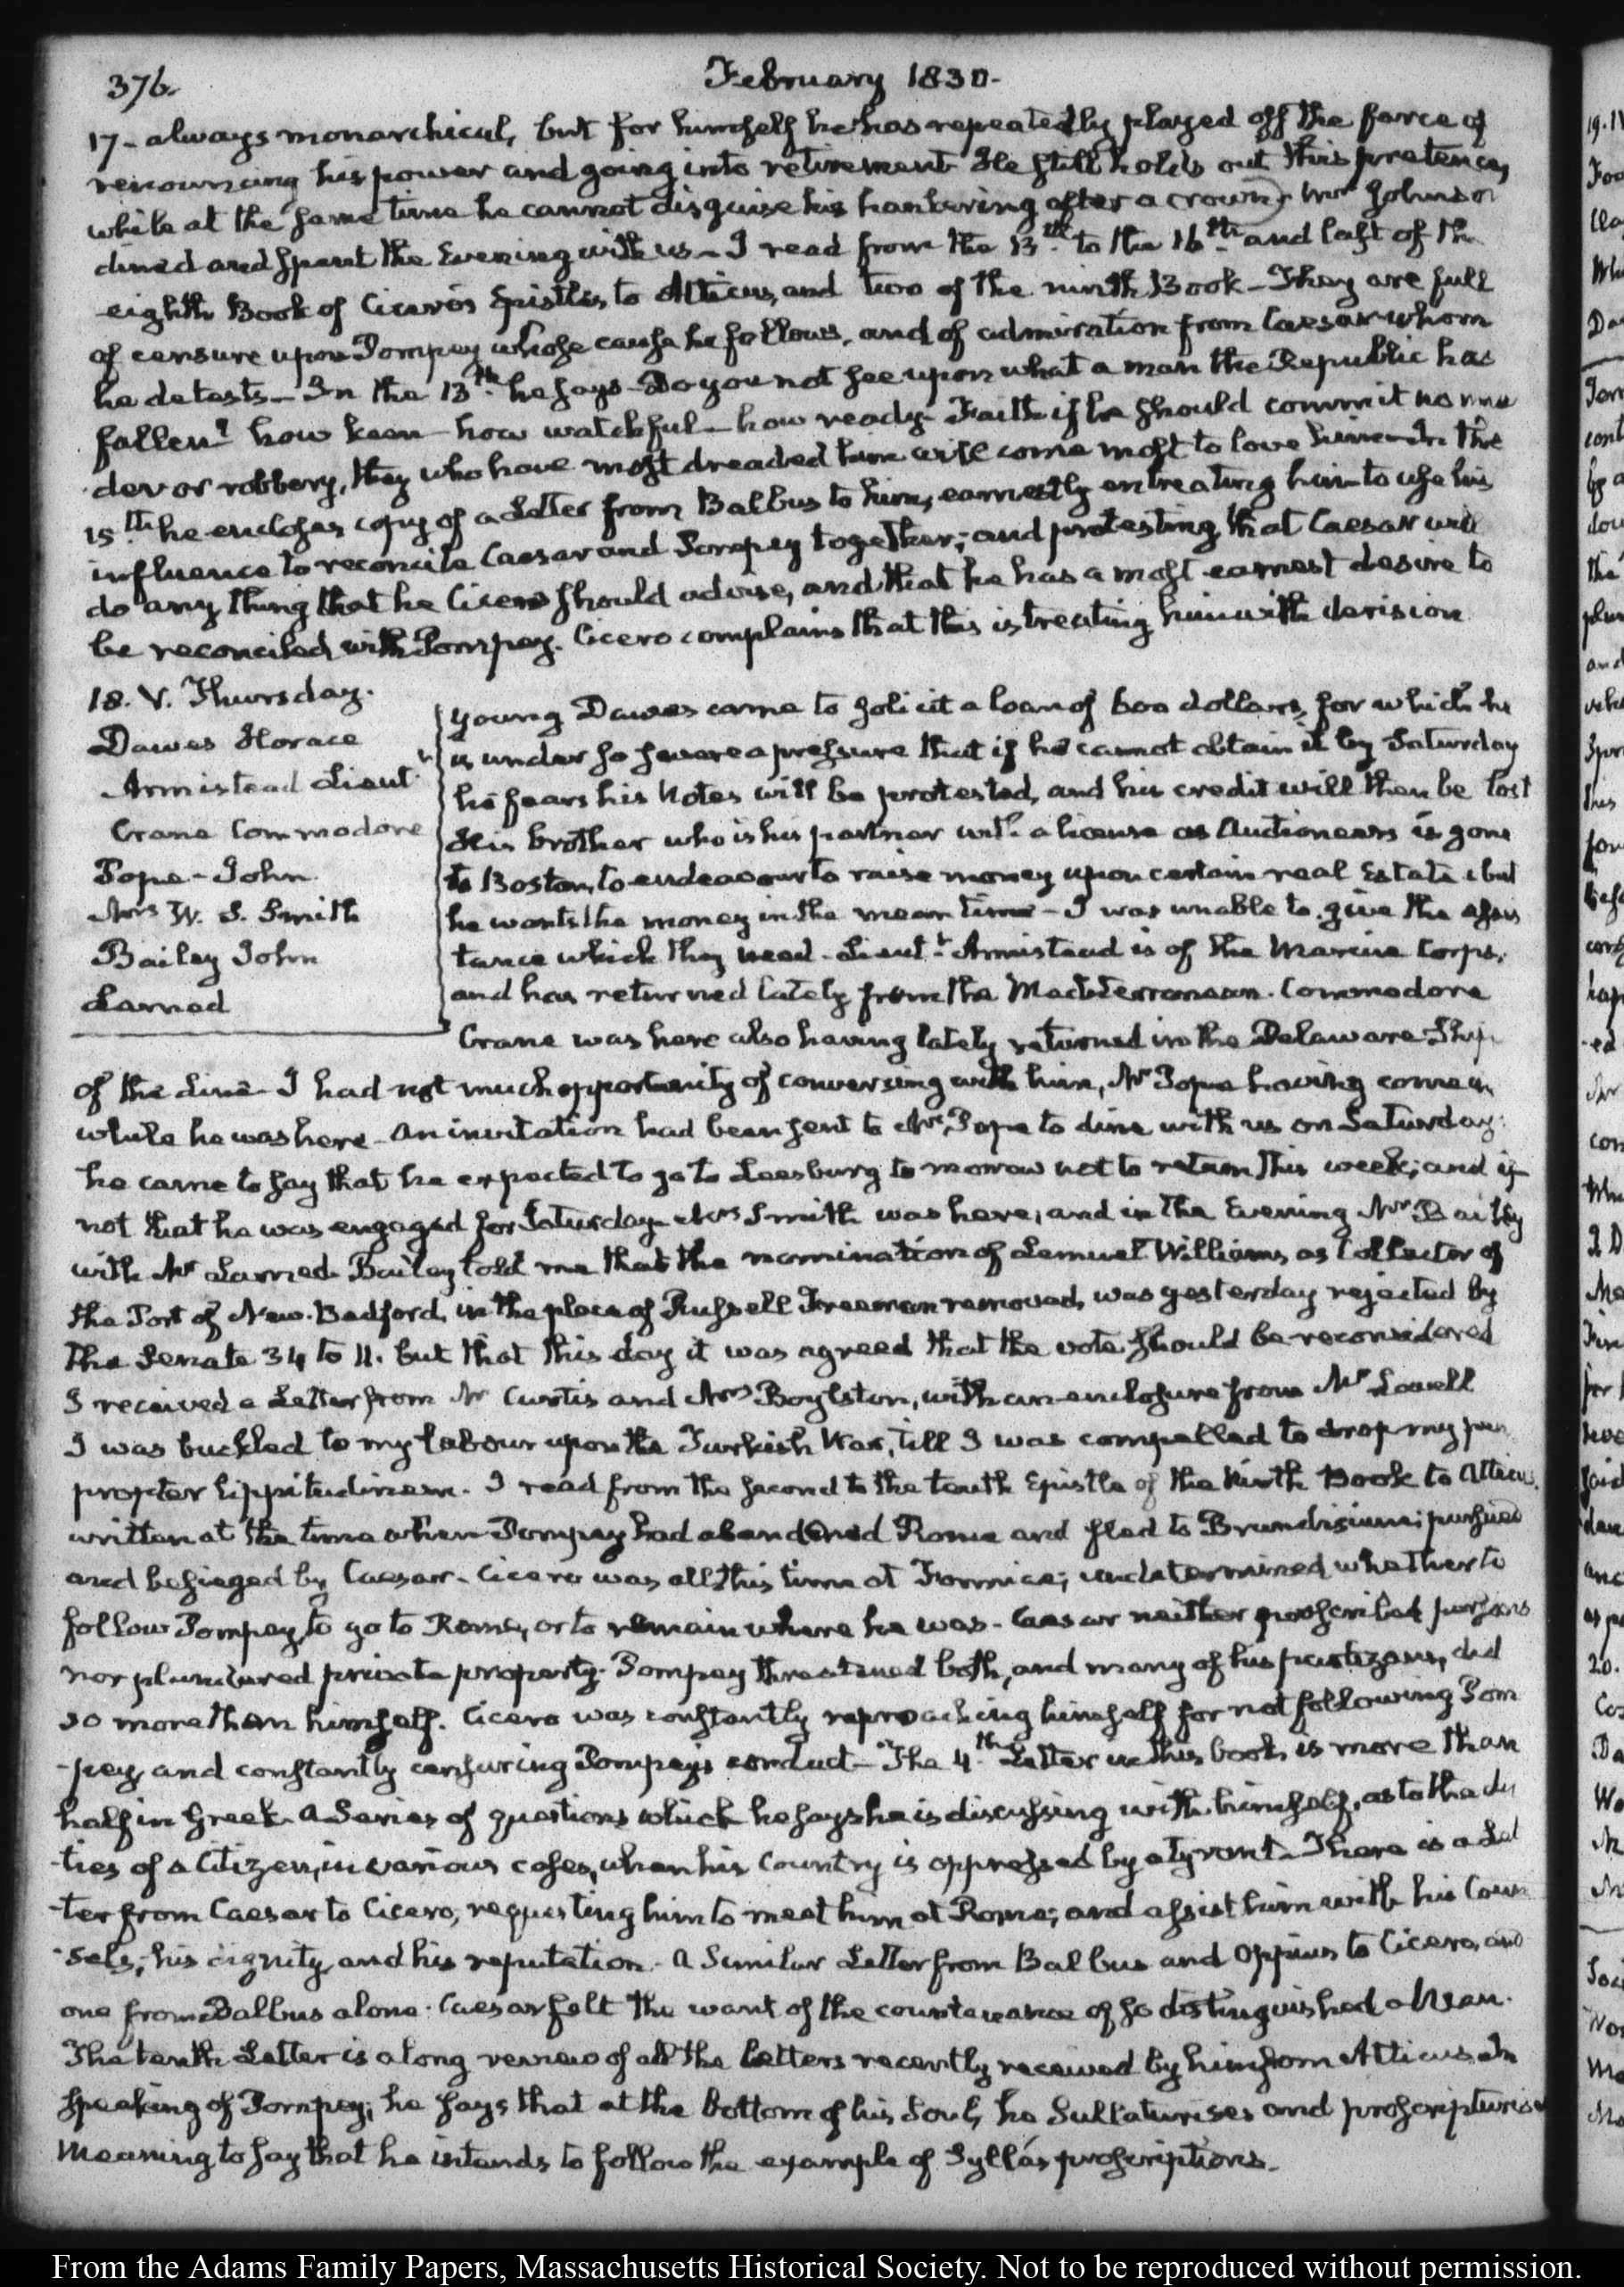 376.
February 1830.
17. always monarchical, but for himself he has repeatedly played off the farce of
renouncing his power and going into retirement He still holds out this pretence,
while at the same time he cannot disguise his hankering after a crown) Mr Johnson
dined and spent the Evening with us – I read from the 13th to the 16th and last of the
eighth Book of Cicero's Epistles to Atticus, and two of the ninth Book – They are full
of censure upon Pompey whose cause he follows, and of admiration from Caesar whom
he detests – In the 13th he says – Do you not see upon what a man the Republic has
fallen? how keen – how watchful – how ready – Faith if he should commit no mur
der or robbery, they who have most dreaded him will come most to love him – In the
15th he encloses copy of a Letter from Balbus to him, earnestly entreating him to use his
influence to reconcile Caesar and Pompey together; and protesting that Caesar will
do any thing that he Cicero should advise, and that he has a most earnest desire to
be reconciled with Pompey. Cicero complains that this is treating him with derision
18. V. Thursday.
Dawes Horace
Armistead Lieutt
Crane Commodore
Pope – John
Mrs W. S. Smith
Bailey John
Larned
Young Dawes came to solicit a loan of 600 dollars, for which he
is under so severe a pressure that if he cannot obtain it by Saturday
he fears his Notes will be protested, and his credit will then be lost
His brother who is his partner with a license as Auctioneers is gone
to Boston, to endeavour to raise money upon certain real Estate but
he wants the money in the mean time – I was unable to give the assis
tance which they need – Lieutt Armistead is of the Marine Corps,
and has returned lately from the Mediterranean. Commodore
Crane was here also having lately returned in the Delaware Ship
of the Line – I had not much opportunity of conversing with him, Mr Pope having come in
while he was here – An invitation had been sent to Mr Pope to dine with us on Saturday;
he came to say that he expected to go to Leesburg to morrow not to return this week; and if
not that he was engaged for Saturday – Mrs Smith was here, and in the Evening Mr Bailey
with Mr Larned. Bailey told me that the nomination of Lemuel Williams, as Collector of
the Port of New-Bedford, in the place of Russell Freeman removed, was yesterday rejected by
the Senate 34 to 11. but that this day it was agreed that the vote should be reconsidered
I received a Letter from Mr Curtis and Mrs Boylston, with an enclosure from Mr Lowell
I was buckled to my labour upon the Turkish War, till I was compelled to drop my pen
propter lippitudinem. I read from the second to the tenth Epistle of the Ninth Book to Atticus.
written at the time when Pompey had abandoned Rome and fled to Brundisium; pursued
and besieged by Caesar – Cicero was all this time at Formiae; undetermined whether to
follow Pompey, to go to Rome, or to remain where he was – Caesar neither proscribed persons
nor plundered private property. Pompey threatened both, and many of his partizans, did
so more than himself. Cicero was constantly reproaching himself for not following Pom
-pey and constantly censuring Pompey's conduct – The 4th Letter in this book is more than
half in Greek. A Series of questions which he says he is discussing with himself, as to the du
-ties of a Citizen, in various cases, when his Country is oppressed by a tyrant – There is a Let
-ter from Caesar to Cicero, requesting him to meet him at Rome; and assist him with his Coun
-sels, his dignity and his reputation. A Similar Letter from Balbus and Oppius to Cicero, and
one from Balbus alone. Caesar felt the want of the countenance of so distinguished a Man.
The tenth Letter is a long review of all the letters recently received by him from Atticus – In
speaking of Pompey, he says that at the bottom of his Soul, he Sullaturises and proscripturises
Meaning to say that he intends to follow the example of Sylla's proscriptions.
From the Adams Family Papers, Massachusetts Historical Society. Not to be reproduced without permission.